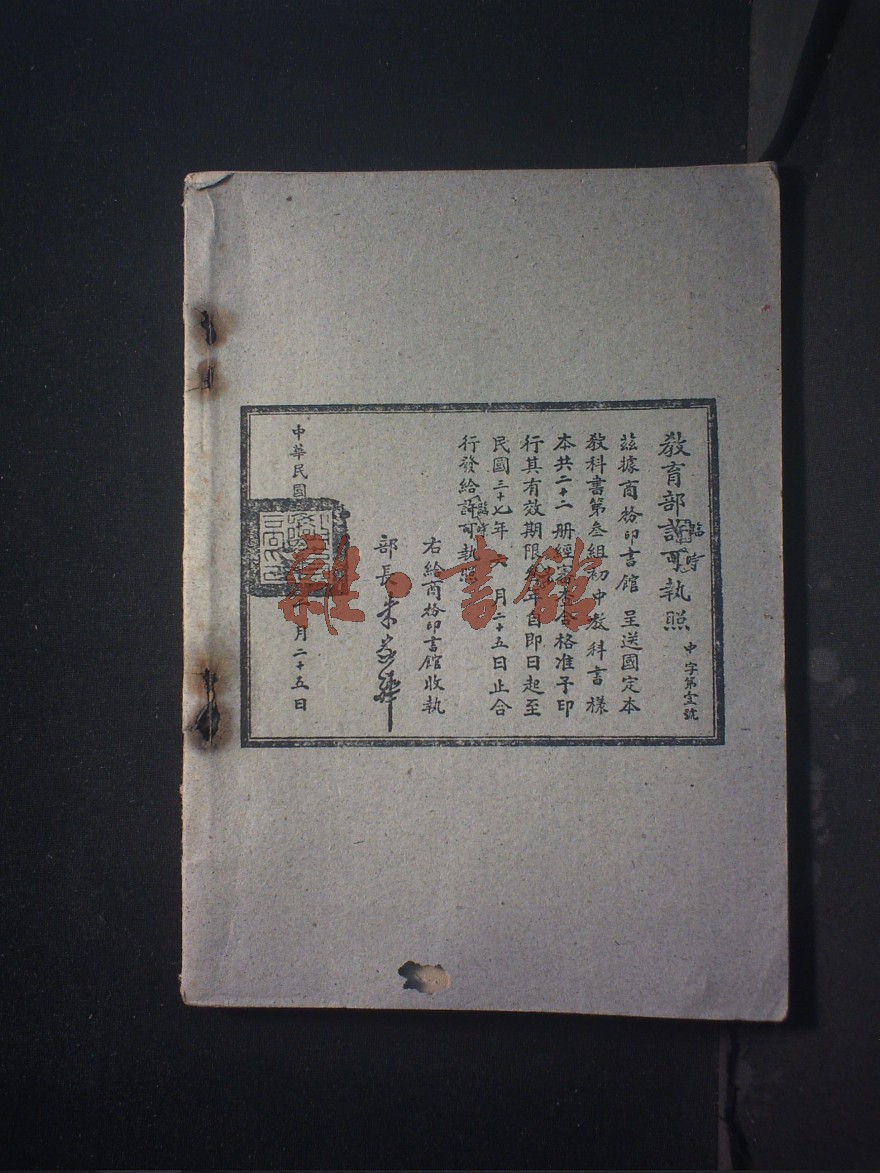 教育部臨時許可執照
中字第壹號
茲據商務印書館 呈送國定本
教科書第叁組初中教科書樣
本共二十二册經審查合格准予印
行其有效期限 年自即日起至
民國三十七年 月二十五日止合
行發給臨時許可執照
右給商務印書館收執
部長朱家驊
中華民國 月二十五日
雜·書館